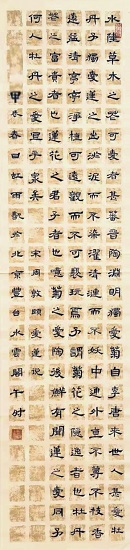 水陸草木之花可愛者甚蕃晋陶淵明獨愛菊自李唐来世人甚愛牡
丹予獨愛蓮之出淤泥而不染濯清漣而不妖中通外直不蔓不枝香
遠益清亭亭淨植可遠觀而不可褻玩焉予謂菊花之隱逸者也牡丹
花之富貴者也蓮花之君子者也噫菊之愛陶後鮮有聞蓮之愛同予
何人牡丹之愛宜乎眾矣 宋周敦頤愛蓮說
甲春日雨於北京豐台水雲閣午時